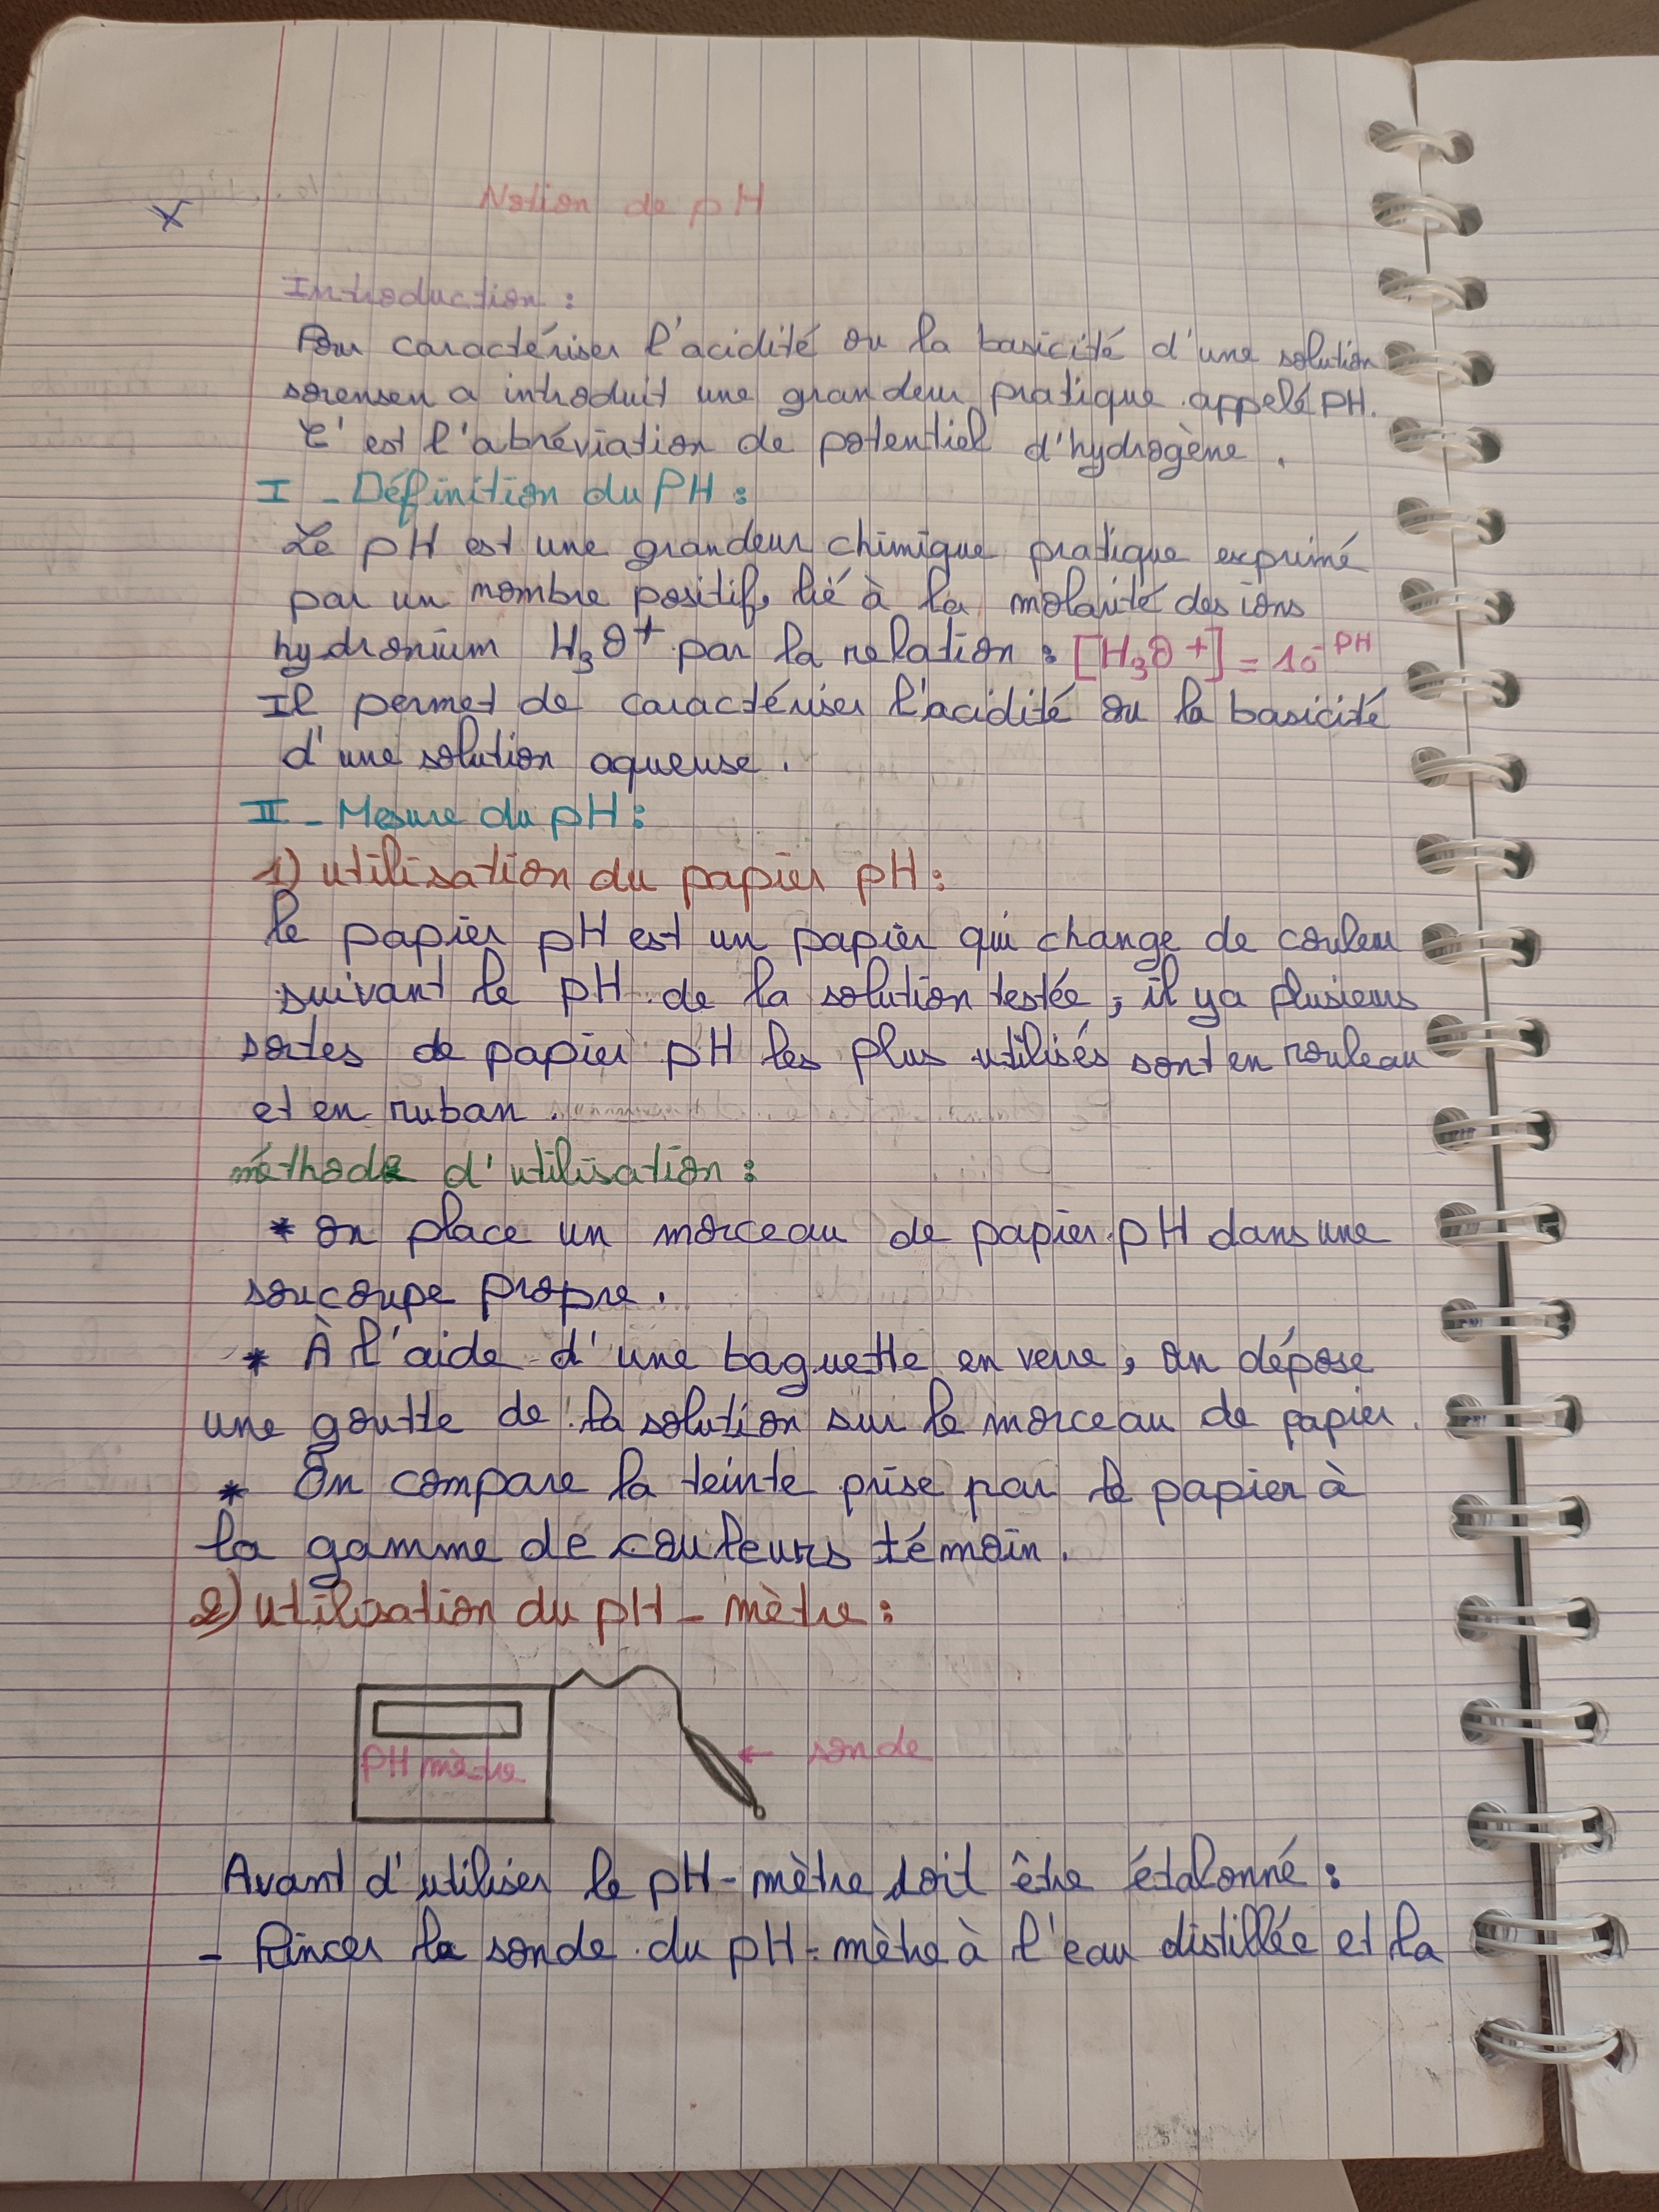 Notion de pH
Introduction :
Pour caractériser l'acidité ou la basicité d'une solution
sorensen a introduit une grandeur pratique appelé PH.
C'est l'abréviation de potentiel d'hydrogène.
I - Définition du PH :
Le pH est une grandeur chimique pratique exprimé
par un nombre positif, lié à la molarité des ions
hydronium H₃O⁺ par la relation : [H₃O⁺] = 10⁻ᴾᴴ
Il permet de caractériser l'acidité ou la basicité
d'une solution aqueuse.
II - Mesure du pH :
1) utilisation du papier pH :
le papier pH est un papier qui change de couleur
suivant le pH de la solution testée, il ya plusieurs
sortes de papier pH les plus utilisés sont en rouleau
et en ruban.
méthode d'utilisation :
* on place un morceau de papier pH dans une
soucoupe propre.
* À l'aide d'une baguette en verre, on dépose
une goutte de la solution sur le morceau de papier.
* On compare la teinte prise par le papier à
la gamme de couleurs témoin.
2) utilisation du pH - mètre :
PH mètre
← sonde
Avant d'utiliser le pH - mètre doit être étalonné :
- Rincer la sonde du pH - mètre à l'eau distillée et la